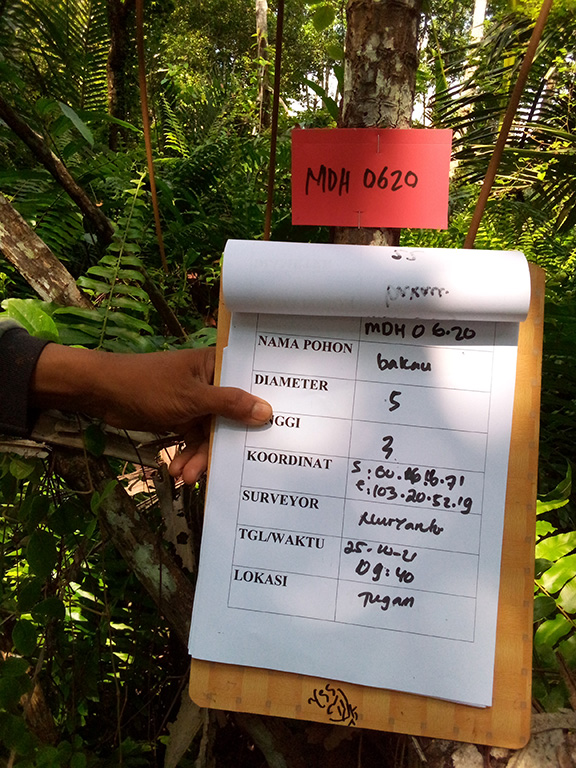 MDH 0620
MDH 0620
NAMA POHON bakau
DIAMETER 5
NGGI 3
KOORDINAT S:00.
e:103.20.52.19
SURVEYOR Nuryanto
TGL/WAKTU 25-10-21
09:40
LOKASI Tugan